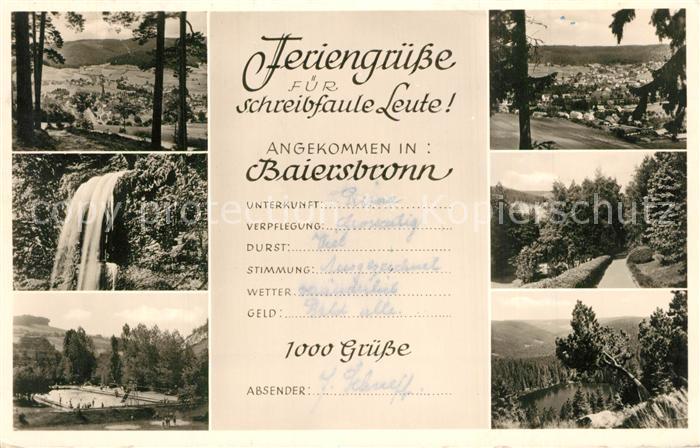 Feriengrüße
FÜR
schreibfaule Leute!
ANGEKOMMEN IN:
Baiersbronn
UNTERKUNFT: Prima
VERPFLEGUNG:
DURST: Viel
STIMMUNG: Ausgezeichnet
WETTER: veränderlich
GELD: Bald alle.
1000 Grüße
ABSENDER:
copy protection copyright